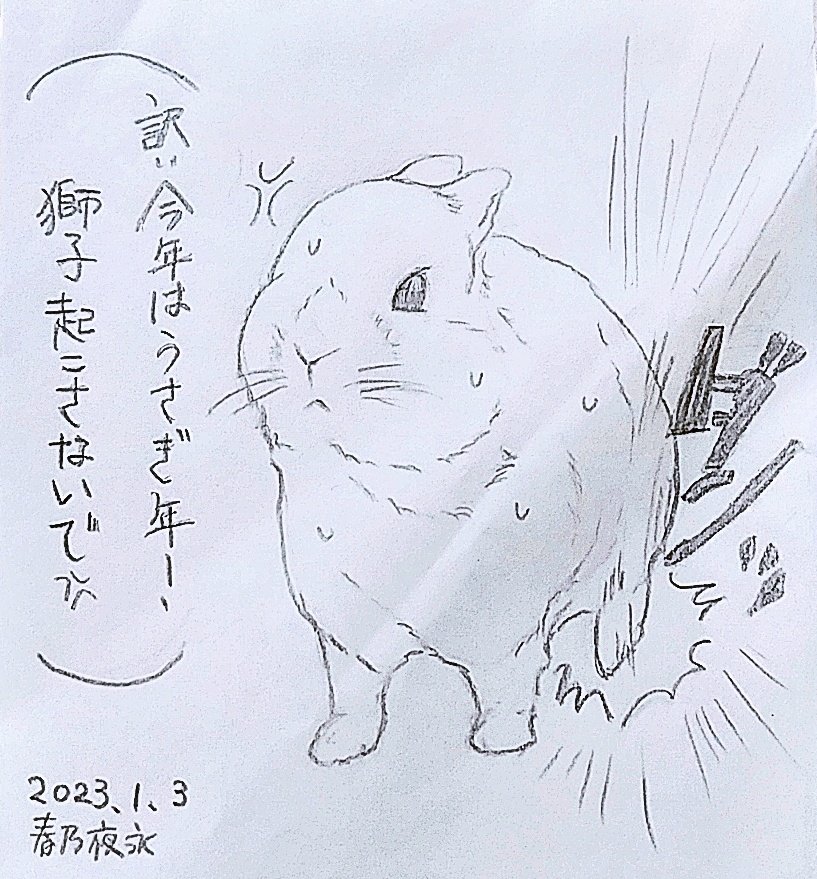 ダンッ
（訳：今年はうさぎ年ー、
獅子起こさないで）
2023、1、3
春乃夜永